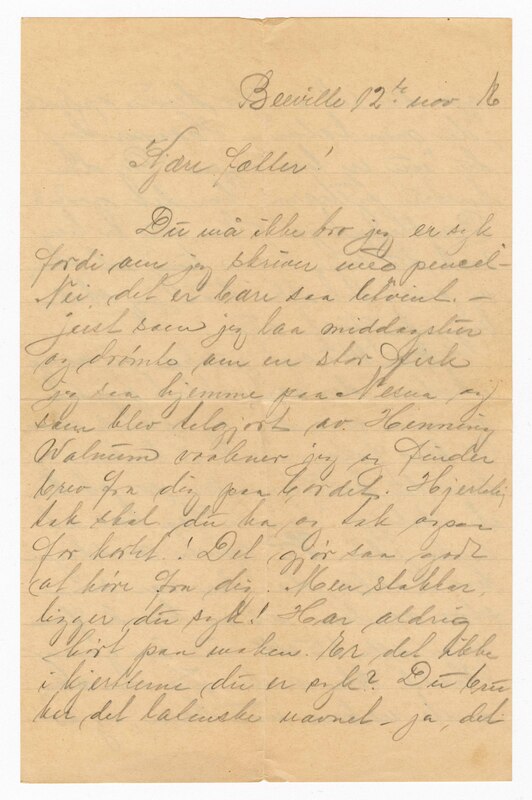 Beeville 12te nov. 16
Kjære fætter!
Du må ikke tro jeg er syk
fordi om jeg skriver med pencil -
Nei, det er bare saa letvint. -
just som jeg laa middagslur
og drømte om en stor fisk
jeg saa hjemme paa Nesna og
som blev tilgjort av Henning
Walnum vaakner jeg og finder
brev fra dig paa bordet. Hjertelig
tak skal du ha og tak ogsaa
for kortet! Det gjør saa godt
at høre fra dig. Men stakkar,
ligger du syk! Har aldrig
hørt paa maken. Er det ikke
i hjerterne du er syk? Du bru
ker det latinske navnet - ja, det